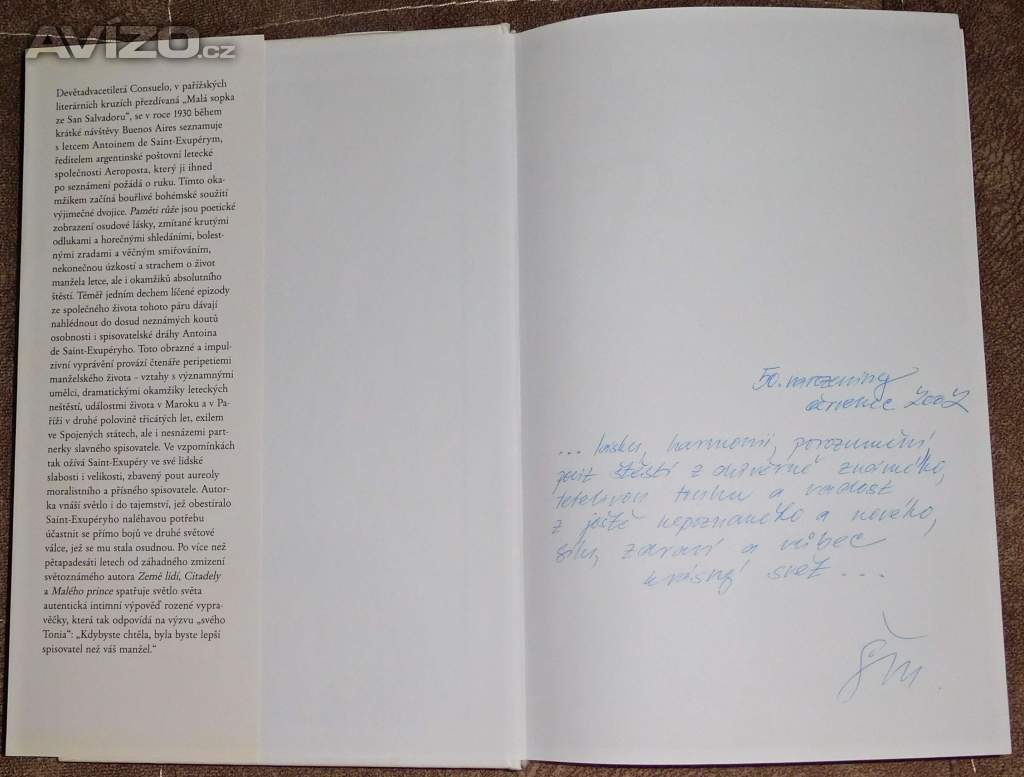 AVÍZO.cz
Devětadvacetiletá Consuelo, v pařížských
literárních kruzích přezdívaná „Malá sopka
ze San Salvadoru“, se v roce 1930 během
krátké návštěvy Buenos Aires seznamuje
s letcem Antoinem de Saint-Exupérym,
ředitelem argentinské poštovní letecké
společnosti Aeroposta, který ji ihned
po seznámení požádá o ruku. Tímto oka-
mžikem začíná bouřlivé bohémské soužití
výjimečné dvojice. Paměti růže jsou poetické
zobrazení osudové lásky, zmítané krutými
odlukami a horečnými shledáními, bolest-
nými zradami a věčným smiřováním,
nekonečnou úzkostí a strachem o život
manžela letce, ale i okamžiků absolutního
štěstí. Téměř jedním dechem líčené epizody
ze společného života tohoto páru dávají
nahlédnout do dosud neznámých koutů
osobnosti i spisovatelské dráhy Antoina
de Saint-Exupéryho. Toto obrazné a impul-
zivní vyprávění provází čtenáře peripetiemi
manželského života – vztahy s významnými
umělci, dramatickými okamžiky leteckých
neštěstí, událostmi života v Maroku a v Pa-
říži v druhé polovině třicátých let, exilem
ve Spojených státech, ale i nesnázemi part-
nerky slavného spisovatele. Ve vzpomínkách
tak ožívá Saint-Exupéry ve své lidské
slabosti i velikosti, zbavený pout aureoly
moralistního a přísného spisovatele. Autor-
ka vnáší světlo i do tajemství, jež obestíralo
Saint-Exupéryho naléhavou potřebu
účastnit se přímo bojů ve druhé světové
válce, jež se mu stala osudnou. Po více než
pětapadesáti letech od záhadného zmizení
světoznámého autora Země lidí, Citadely
a Malého prince spatřuje světlo světa
autentická intimní výpověď rozené vypra-
věčky, která tak odpovídá na výzvu „svého
Tonia“: „Kdybyste chtěla, byla byste lepší
spisovatel než váš manžel.“
50. narozeniny
červenec 2002
... lásku, harmonii, porozumění,
pocit štěstí z důvěrně známého,
touhu a radost
z ještě nepoznaného a nového,
sílu, zdraví a vůbec
krásný svět ...